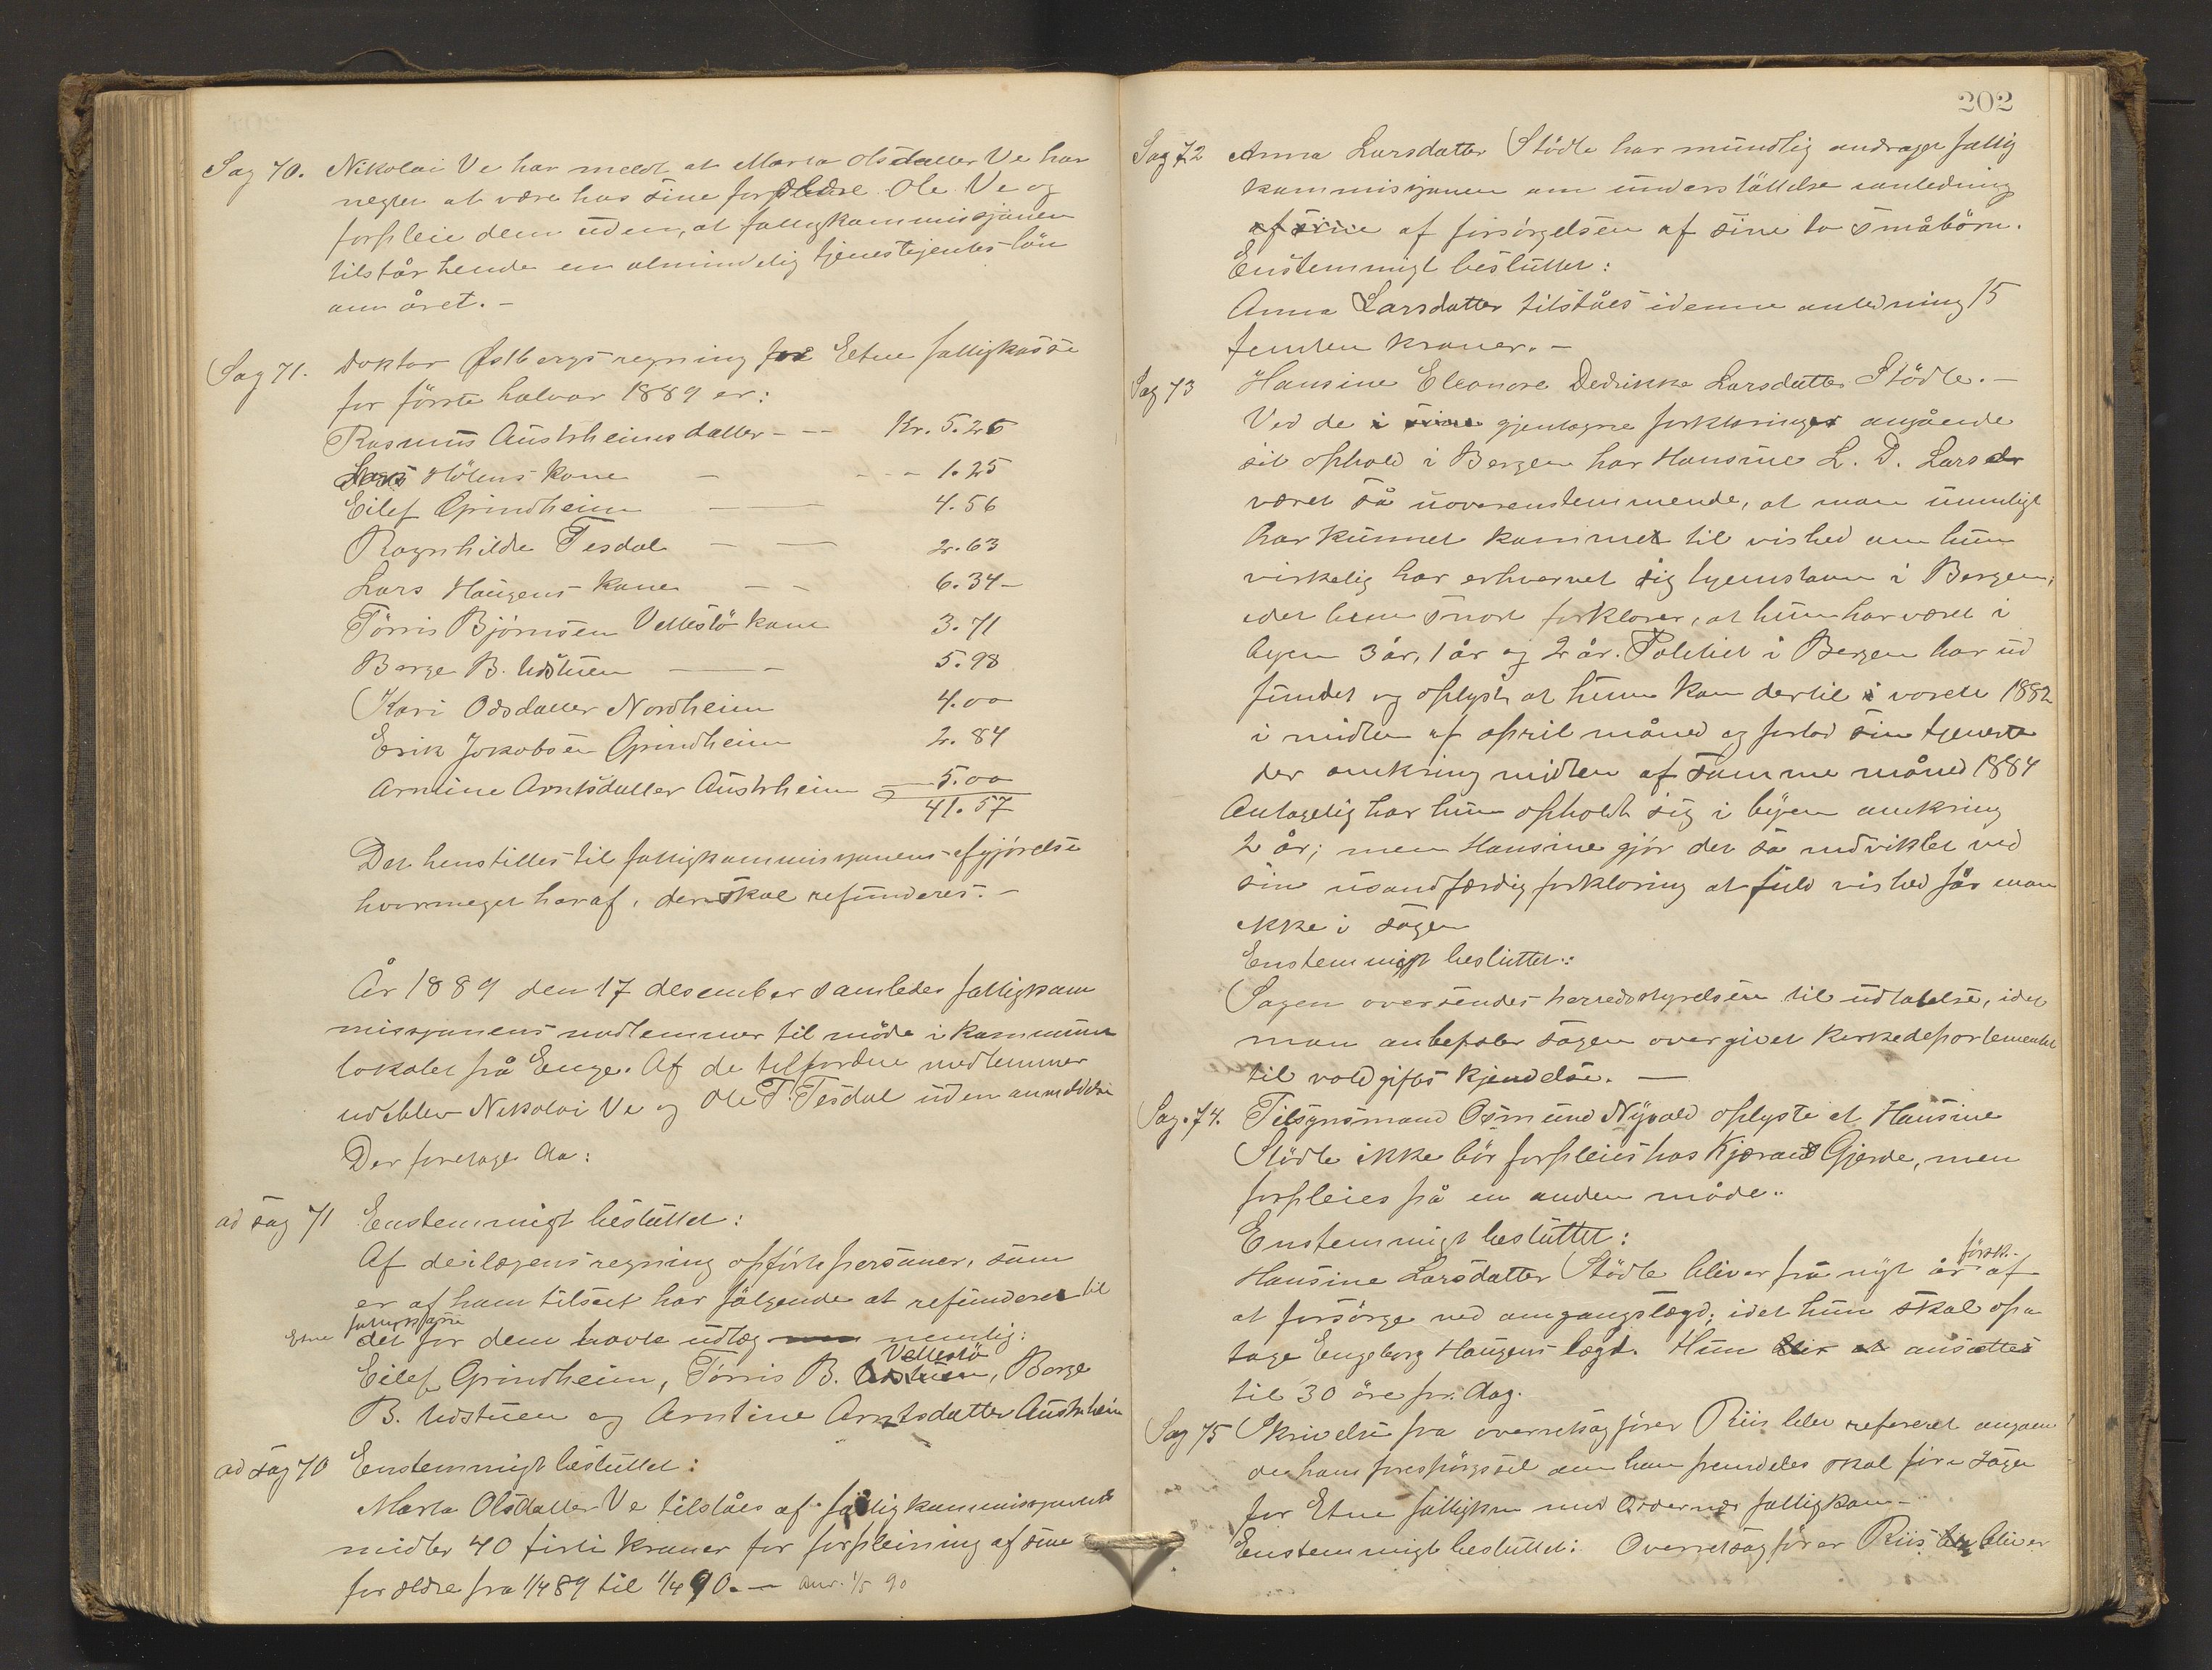 Sag 70. Nikolai Ve har meldt at Marta Olsdatter Ve har
negtet at være hos sine forældre Ole Ve og
forpleie dem uden, at fattigkommissjonen
tilstår hende en almindelig tjenestejentes løn
om året. -
Sag 71. Doktor Østbergs regning for Etne fattigkasse
for første halvår 1889 er:
Rasmus Austrheims datter - -- Kr. 5.26
Lars Hølens kone - - - - 1.25
Eilef Grindheim — — 4.56
Ragnhilde Tesdal — — 2.63
Lars Haugens kone - - 6.34 -
Tørris Bjørnsen Vettestø kone 3.71
Børge B. Udstuen — - 5.98
Kari Odsdatter Nordheim 4.00
Erik Jokobsen Grindheim 2.84
Arntine Arntsdatter Austrheim 5.00
41.57
Det henstilles til fattigkommissjonens afgjørelse
hvormeget heraf, der skal refunderes. -
År 1889 den 17 desember samledes fattigkom
missjonens medlemmer til møde i kommune
lokalet på Enge. Af de tilforordne medlemmer
udeblev Nikolai Ve og Ole T. Tesdal uden anmeldelse
Der foretoges da:
ad sag 71 Enstemmigt besluttet:
Af de i lægens regning opførte personer, som
er af ham tilseet har følgende at refundere til
Etne fattigkasse
det for dem havte udlæg nemlig:
Vettestø
Eilef Grindheim, Tørris B. Udstuen, Børge
B. Udstuen og Arntine Arntsdatter Austrheim
ad sag 70 Enstemmigt besluttet:
Marta Olsdatter Ve tilståes af fattigkommissjonens
midler 40 firti kroner for forpleining af sine
forældre fra 1/4 89 til 1/4 90. — Anv. 1/5 90
202
Sag 72 Anna Larsdatter Stødle har mundtlig andraget fattig
kommissjonen om understøttelse i anledning
af sine af forsørgelsen af sine to småbørn.
Enstemmigt besluttet:
Anna Larsdatter tilståes i denne anledning 15
femten kroner. -
Sag 73 Hansine Eleonore Dedrikke Larsdatter Stødle. -
Ved de i sine gjentagne forklaringer angående
sit ophold i Bergen har Hansine E. D. Larsdr
været så uoverenstemmende, at man umuligt
har kunnet kommet til vished om hun
virkelig har erhvervet sig hjemstavn i Bergen,
idet hun snart forklarer, at hun har været i
byen 3 år, 1 år og 2 år. Politiet i Bergen har ud
fundet og oplyst at hun kom dertil i våren 1882
i midten af april måned og forlod sin tjeneste
der omkring midten af samme måned 1884
Antagelig har hun opholdt sig i byen omkring
2 år; men Hansine gjør det så indviklet ved
sin usandfærdig forklaring at fuld vished får man
ikke i sagen
Enstemmigt besluttet:
Sagen oversendes herredsstyrelsen til udtalelse, idet
man anbefaler sagen overgivet kirkedepartementet
til voldgifts kjendelse. —
Sag. 74. Tilsynsmand Osmund Nyvold oplyste at Hansine
Stødle ikke bør forpleies hos Kjærand Gjerde, men
forpleies på en anden måde.
Enstemmigt besluttet:
førsk.
Hansine Larsdatter Stødle bliver fra nyt år af
at forsørge ved omgangslægd; idet hun skal op
tage Engeborg Haugens lægd. Hun ansættes
til 30 øre pr. dag.
Sag 75 Skrivelse fra overretsagfører Riis blev refereret angåen
de hans forespørgssel om han fremdeles skal føre sagen
for Etne fattigkom med fattigkom-
Enstemmigt besluttet: Overretsagfører Riis bliver